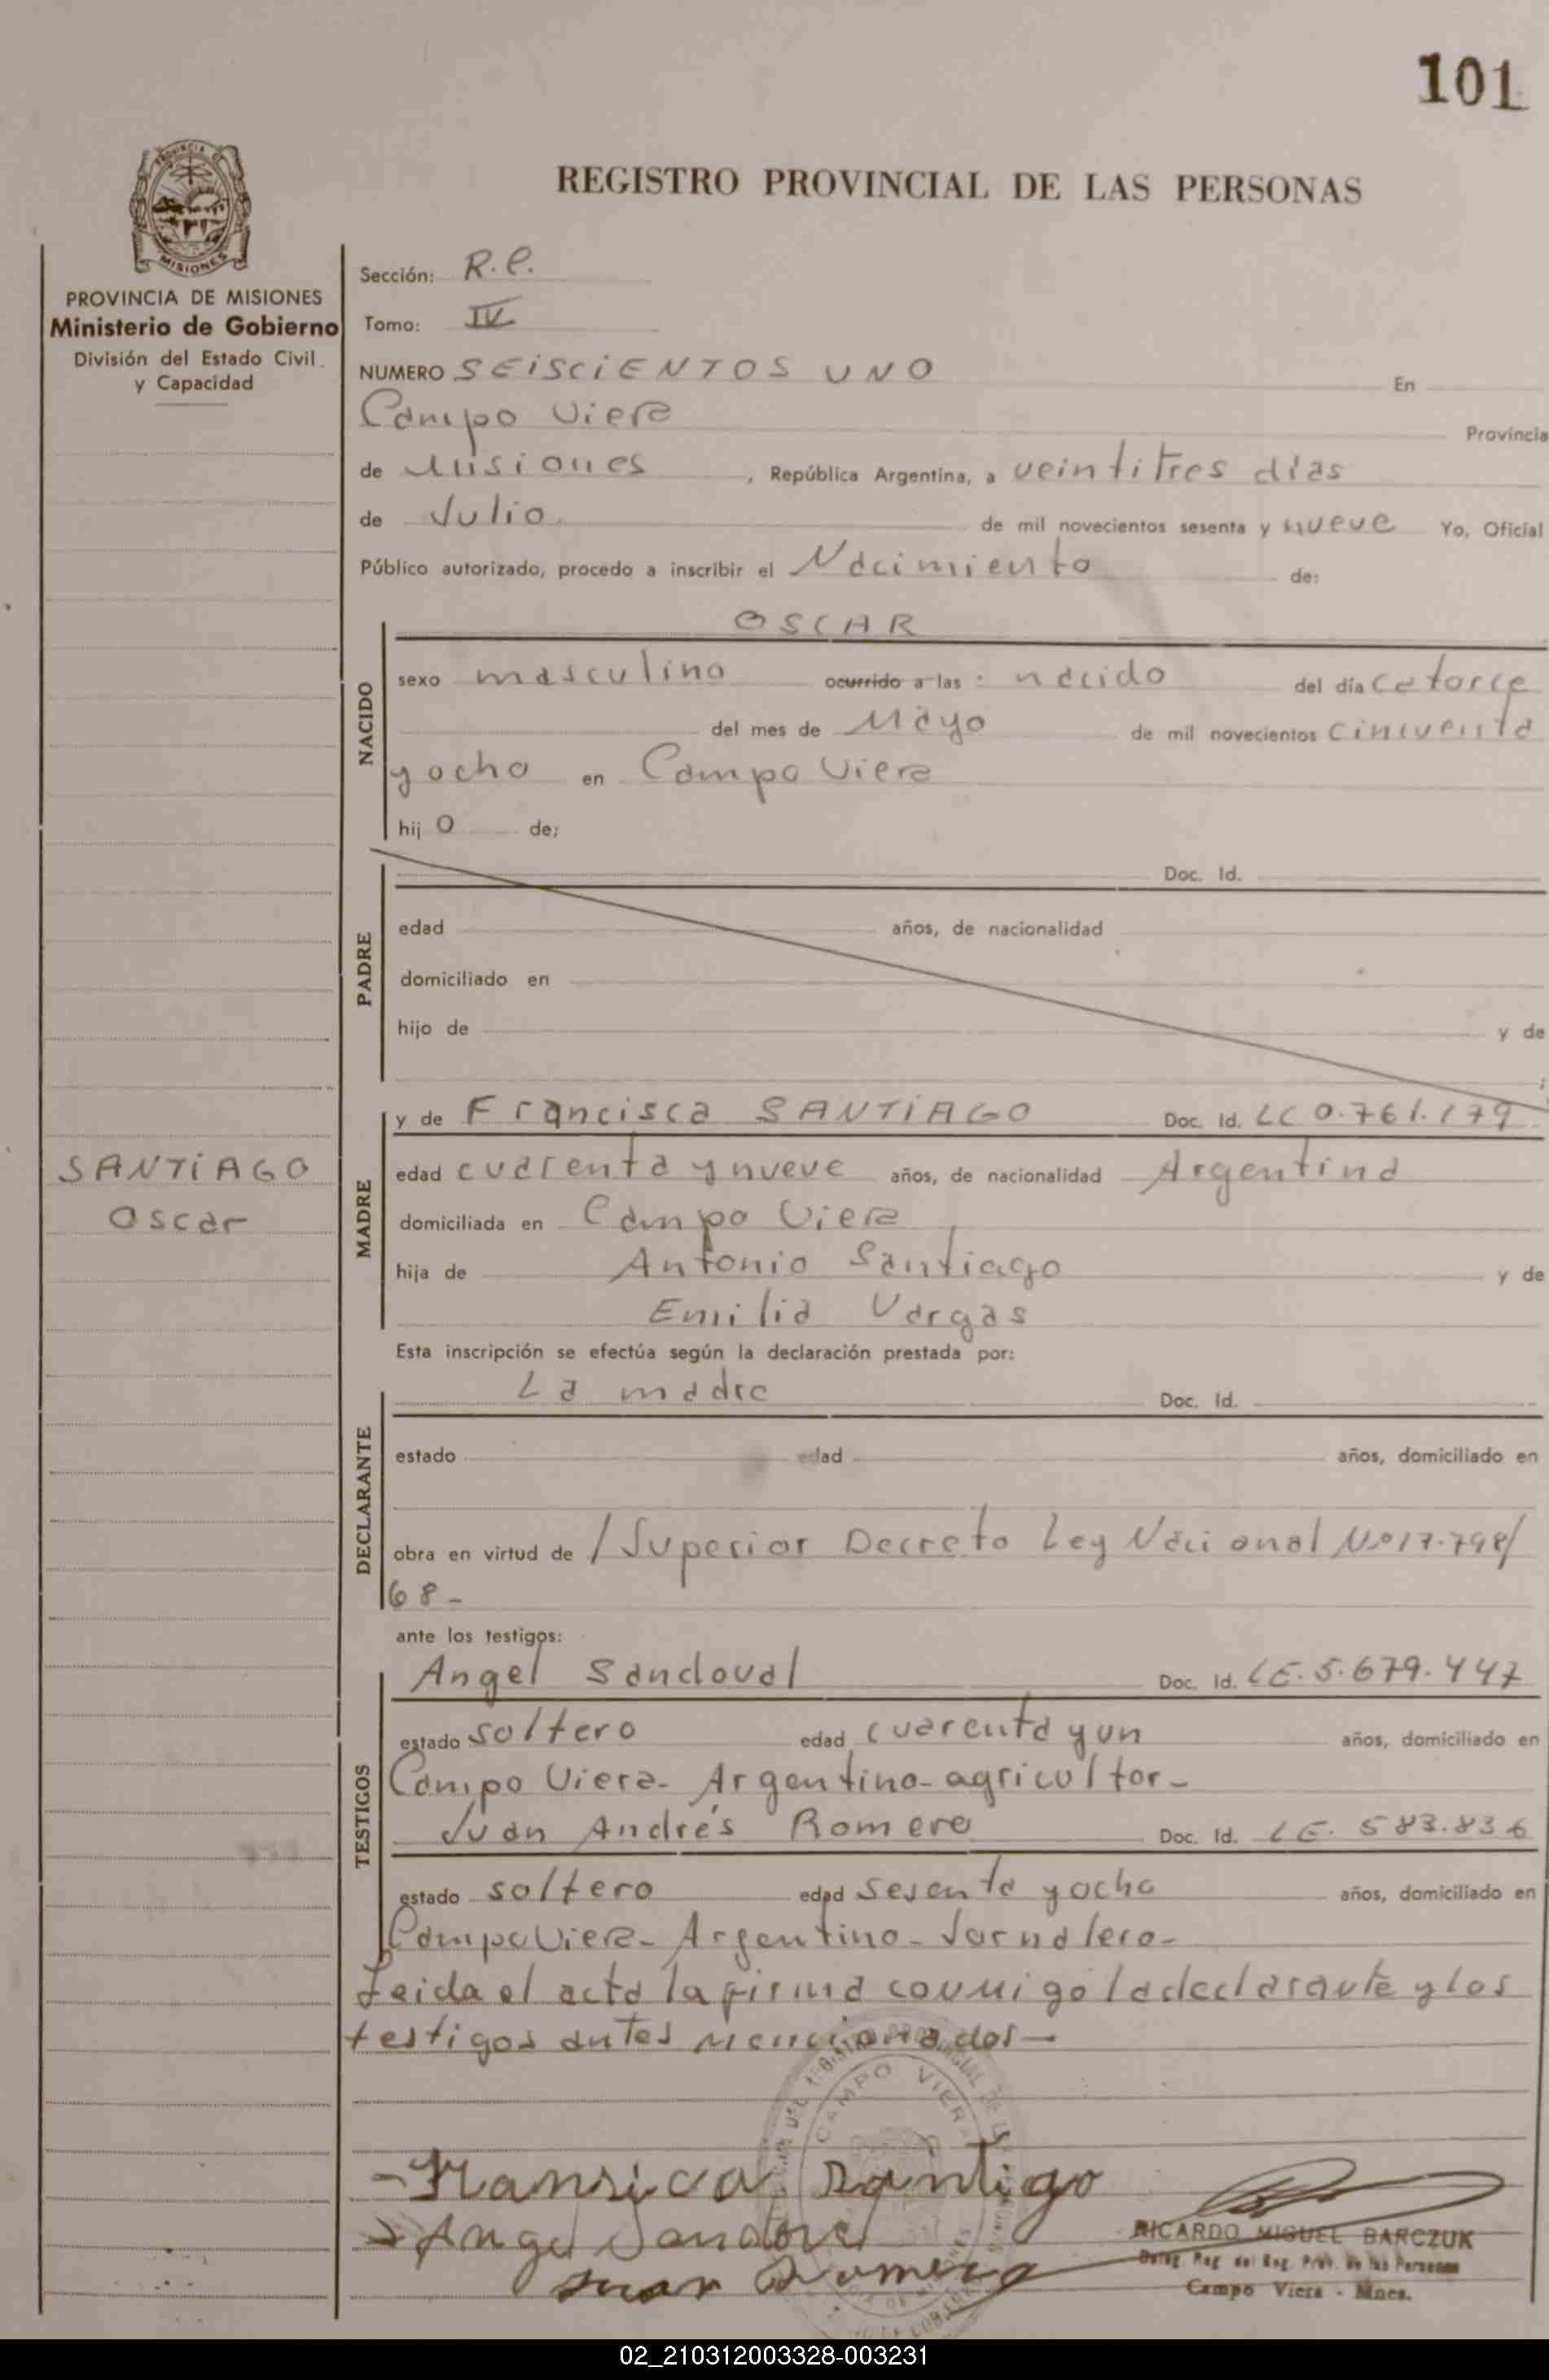 101
PROVINCIA DE
MISIONES
REGISTRO PROVINCIAL DE LAS PERSONAS
PROVINCIA DE MISIONES
Ministerio de Gobierno
División del Estado Civil
y Capacidad
Sección: R.C.
Tomo: IV
NUMERO SEISCIENTOS UNO En
Campo Viera Provincia
de Misiones, República Argentina, a veintitres dias
de Julio de mil novecientos sesenta y nueve Yo, Oficial
Público autorizado, procedo a inscribir el Nacimiento de:
NACIDO
OSCAR
sexo masculino ocurrido a las : nacido del día catorce
del mes de Mayo de mil novecientos cincuenta
y ocho en Campo Viera
hij o de;
PADRE
Doc. Id.
edad años, de nacionalidad
domiciliado en
hijo de y de
;
MADRE
y de Francisca SANTIAGO Doc. Id. LC 0.761.179
SANTIAGO
Oscar
edad cuarenta y nueve años, de nacionalidad Argentina
domiciliada en Campo Viera
hija de Antonio Santiago y de
Emilia Vargas
Esta inscripción se efectúa según la declaración prestada por:
DECLARANTE
La madre Doc. Id.
estado edad años, domiciliado en
obra en virtud de /Superior Decreto Ley Nacional Nº 17.798/
68-
ante los testigos:
TESTIGOS
Angel Sandoval Doc. Id. LE. 5.679.447
estado soltero edad cuarenta y un años, domiciliado en
Campo Viera- Argentino- agricultor-
Juan Andrés Romero Doc. Id. LE. 583.836
estado soltero edad sesenta y ocho años, domiciliado en
Campo Viera- Argentino- Jornalero-
Leida el acta la firma conmigo la declarante y los
testigos antes mencionados-
CAMPO VIERA
-Fransica Santigo
Angel Sandoval
Juan Romero
RICARDO MIGUEL BARCZUK
Deleg. Reg. del Reg. Prov. de las Personas
Campo Viera - Mnes.
02_210312003328-003231